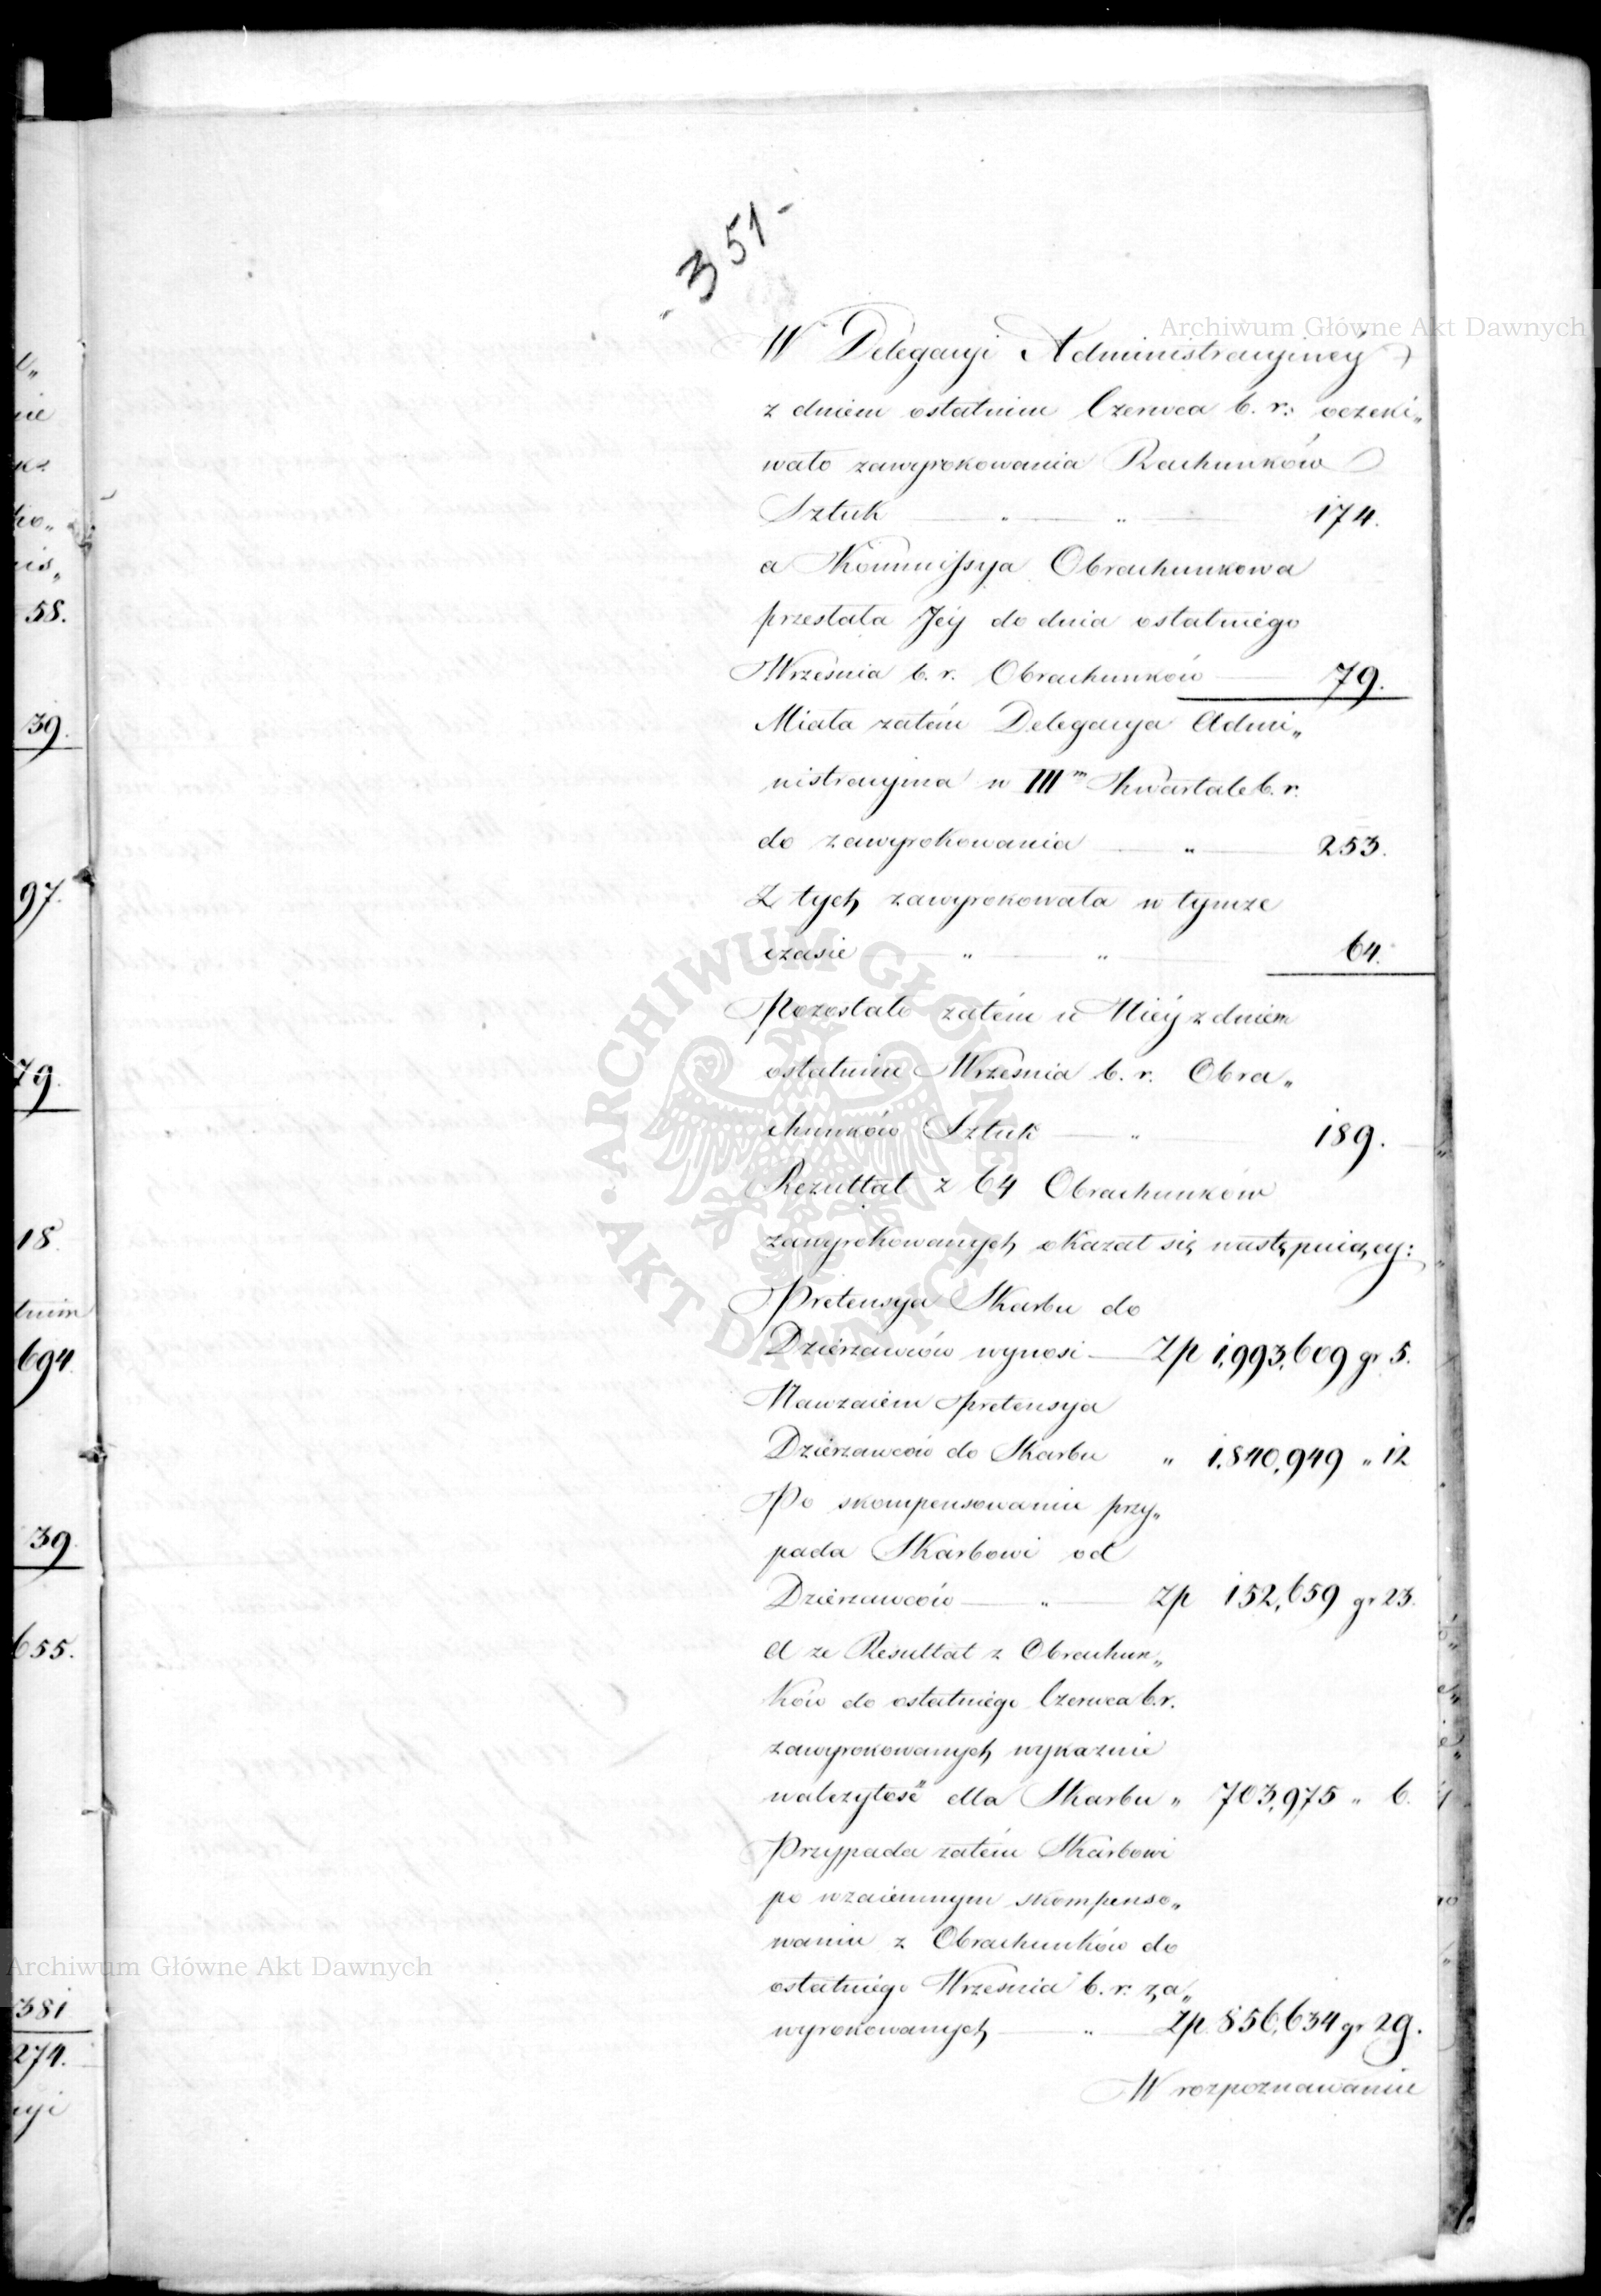 - 351 -
W Delegacyi Administracyinéy
z dniem ostatnim Czerwca b. r. oczeki„
wało zawyrokowania Rachunków
Sztuk — „ — „ — 174.
a Kommissya Obrachunkowa
przesłała Jéy do dnia ostatniégo
Września b. r. Obrachunków — 79.
Miała zatém Delegacya Admi„
nistracyina w IIIm Kwartale b. r.
do zawyrokowania — „ — 253.
Z tych zawyrokowała w tymze
czasie — „ — „ 64.
Pozostało zatém u Niéy z dniem
ostatnim Września b. r. Obra„
chunków Sztuk — „ 189.
Rezultat z 64 Obrachunków
zawyrokowanych okazał się następuiący:
Pretensya Skarbu do
Dzierzawców wynosi — Zp 1,993,609 gr 5.
Nawzaiem pretensya
Dzierzawców do Skarbu „ 1,840,949 „ 12
Po skompensowaniu przy„
pada Skarbowi od
Dzierzawców — „ — Zp 152,659 gr 23.
A ze Resultat z Obrachun„
ków do ostatniégo Czerwca b. r.
zawyrokowanych wykazuie
należytość dla Skarbu „ 703,975 „ 6.
Przypada zatém Skarbowi
po wzaiemnym skompenso„
waniu z Obrachunków do
ostatniégo Września b. r. za„
wyrokowanych — „ — Zp. 856,634 gr 29.
W rozpoznawanie
58.
39.
97.
79.
18.
694.
39.
655.
381
274.
Archiwum Główne Akt Dawnych
ARCHIWUM GŁÓWNE
AKT DAWNYCH
Archiwum Główne Akt Dawnych